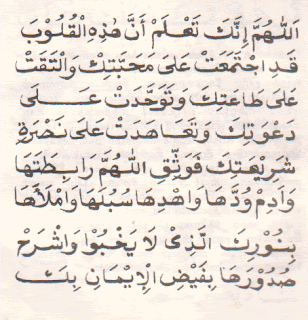 اللّٰهُمَّ إِنَّكَ تَعْلَمُ أَنَّ هٰذِهِ الْقُلُوْبَ
قَدِ اجْتَمَعَتْ عَلَى مَحَبَّتِكَ وَالْتَقَتْ
عَلَى طَاعَتِكَ وَتَوَحَّدَتْ عَلَى
دَعْوَتِكَ وَتَعَاهَدَتْ عَلَى نُصْرَةِ
شَرِيْعَتِكَ فَوَثِّقِ اللّٰهُمَّ رَابِطَتَهَا
وَأَدِمْ وُدَّهَا وَاهْدِهَا سُبُلَهَا وَامْلَأْهَا
بِنُوْرِكَ الَّذِيْ لَا يَخْبُوْا وَاشْرَحْ
صُدُوْرَهَا بِفَيْضِ الْإِيْمَانِ بِكَ